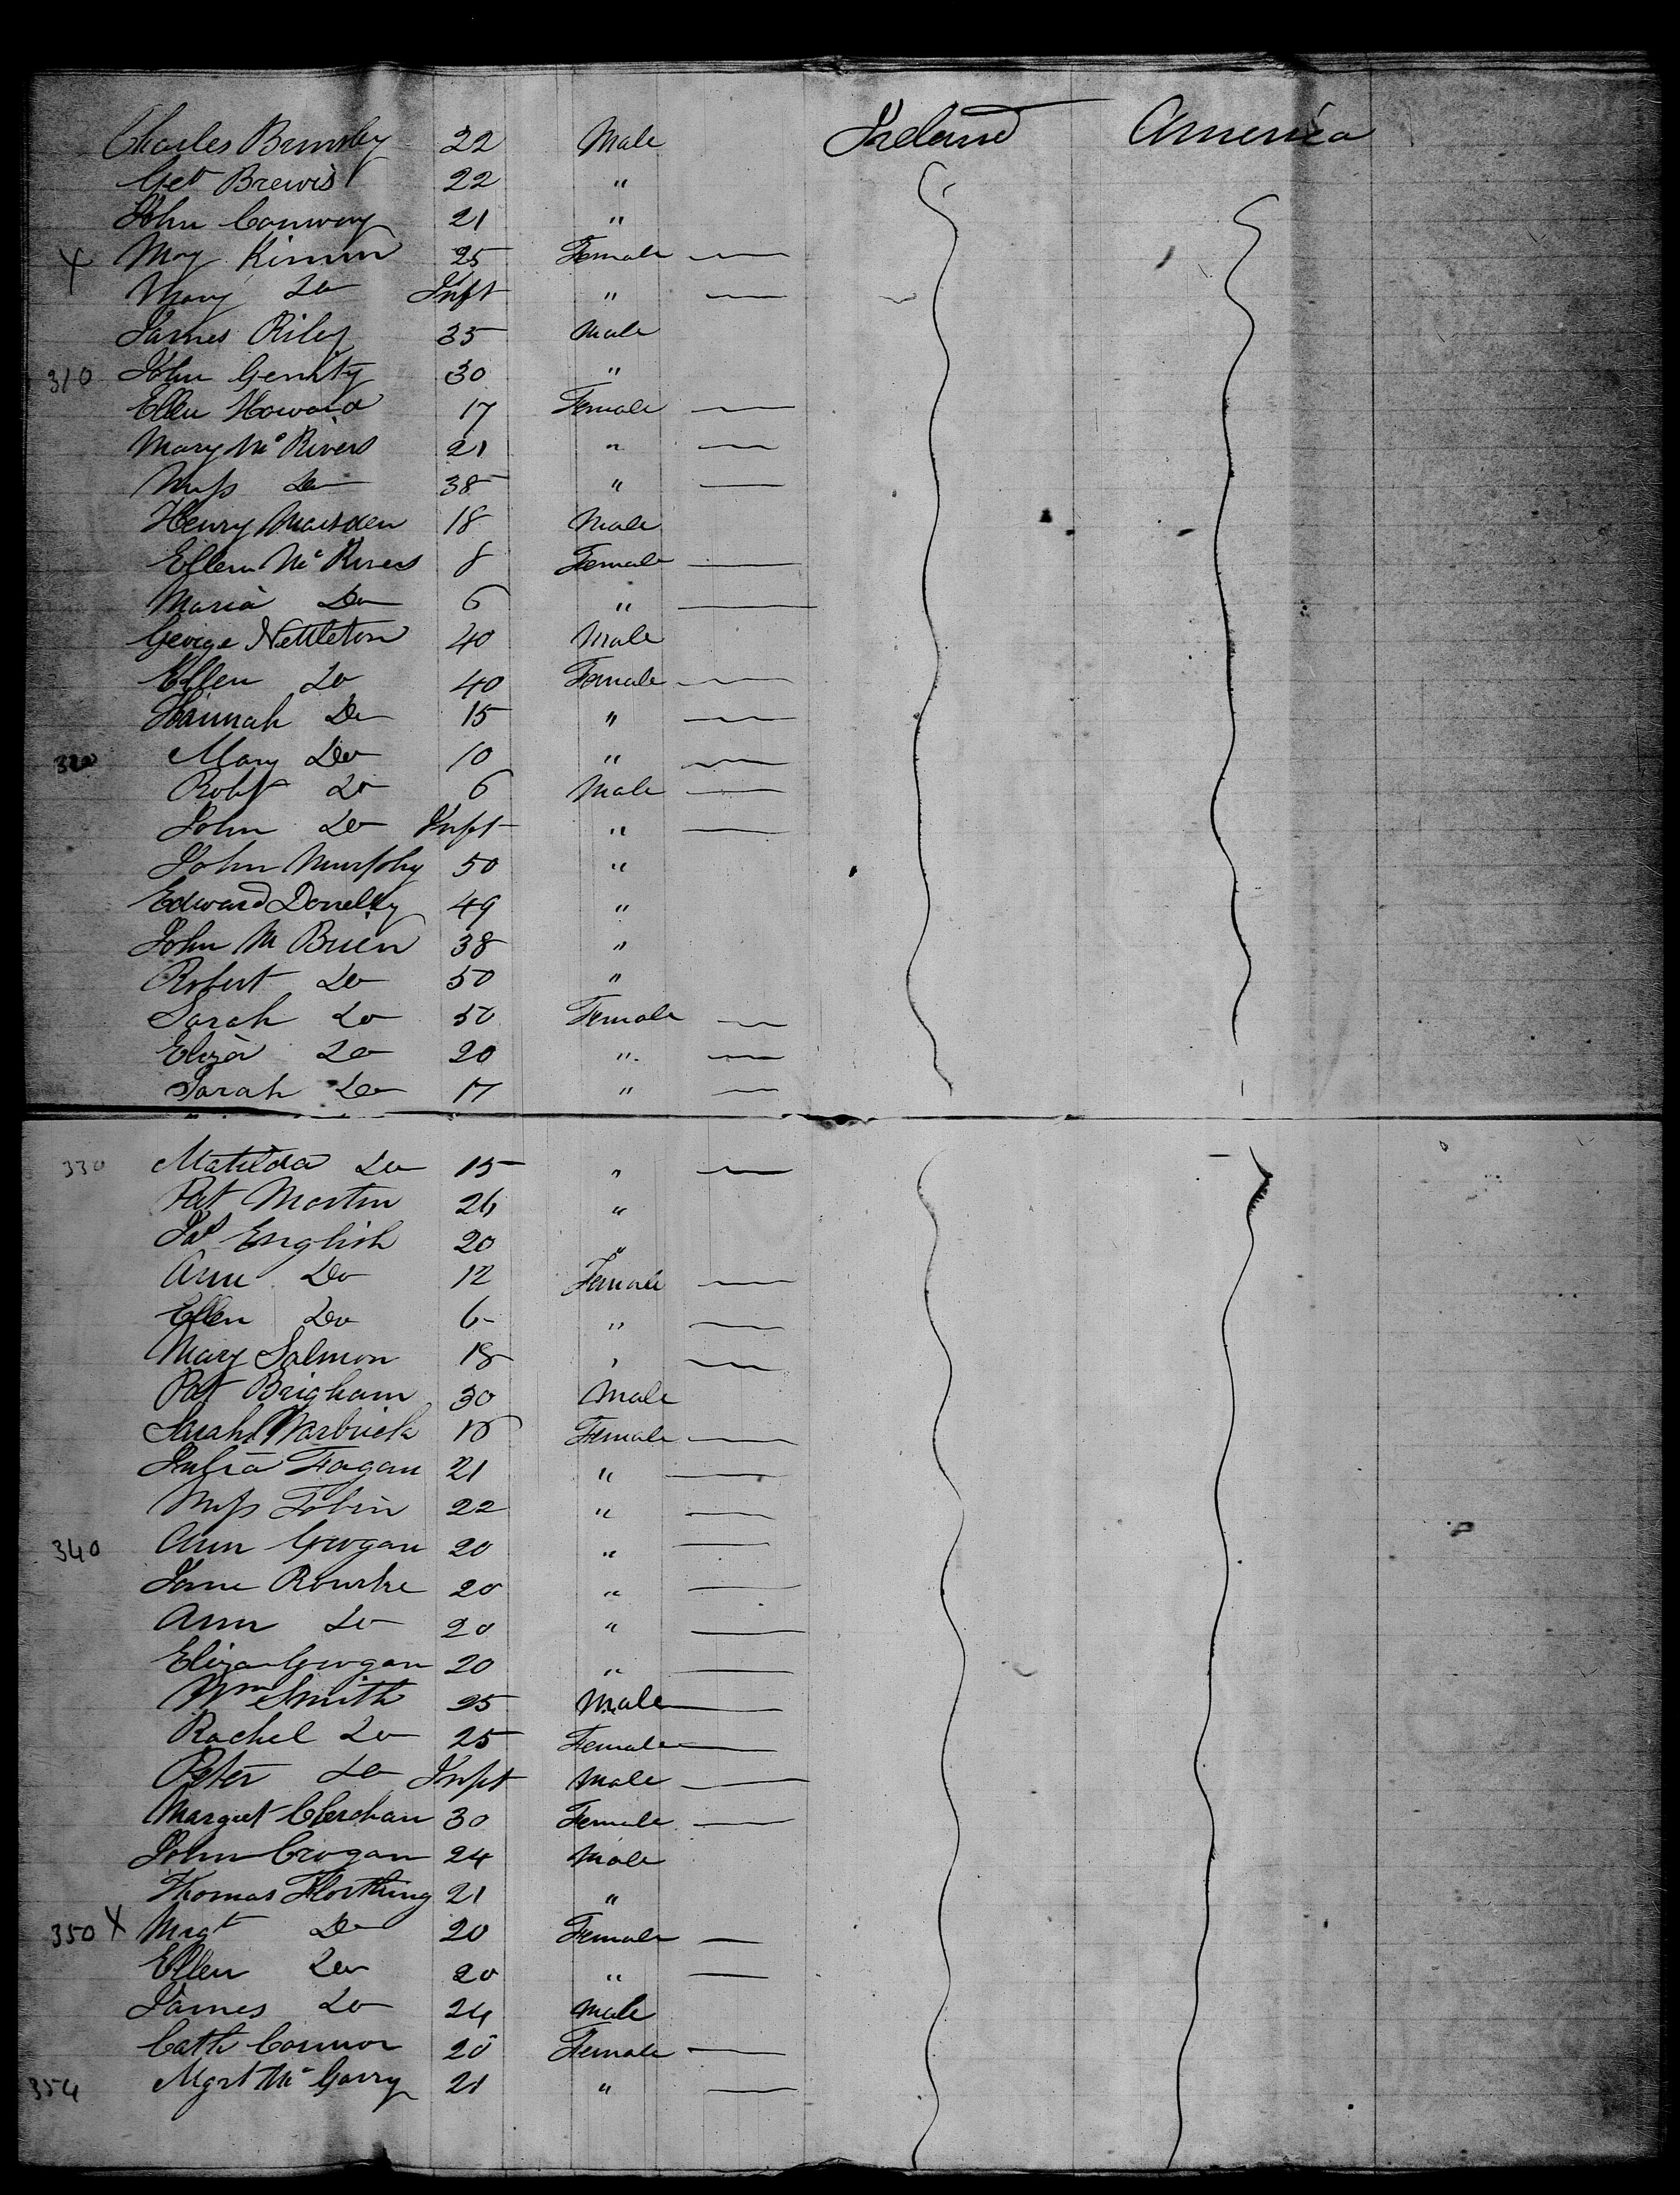 Charles Brunsley 22 Male Ireland America
Get Brewis 22 "
John Conway 21 "
X May Kimm 25 Female
Mary Do Inft "
James Riley 35 Male
310 John Gernity 30 "
Ellen Howard 17 Female
Mary Mc Rivers 21 "
Miss Do 38 "
Henry Marsden 18 Male
Ellen Mc Rivers 8 Female
Maria Do 6 "
George Nettleton 40 Male
Ellen Do 40 Female
Hannah Do 15 "
320 Mary Do 10 "
Robt Do 6 Male
John Do Inft "
John Murphy 50 "
Edward Donelly 49 "
John M Brien 38 "
Robert Do 50 "
Sarah Do 50 Female
Eliza Do 20 "
Sarah Do 17 "
330 Matilda Do 15 "
Pat Martin 26 "
English 20 "
Ann Do 12 Female
Ellen Do 6 "
Mary Salmon 18 "
Pat Brigham 30 Male
Sarah Warbrick 18 Female
Julia Fagan 21 "
Miss Tobin 22 "
340 Ann Grogan 20 "
Jane Rourke 20 "
Ann Do 20 "
Eliza Grogan 20 "
Wm Smith 25 Male
Rachel Do 25 Female
Peter Do Inft Male
Margret 30 Female
John Crogan 24 Male
Thomas 21 "
350 X Mrgt Do 20 Female
Ellen Do 20 "
James Do 24 Male
Cath Connor 20 Female
354 Mgrt Mc Garry 21 "